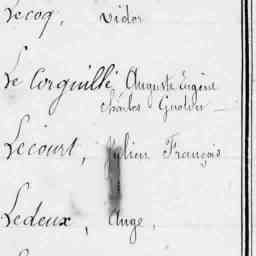 Lecoq, Victor
Le Corguillé, Auguste Eugène
Charles Gustave
Lecourt, Julien François
Ledeux, Ange,